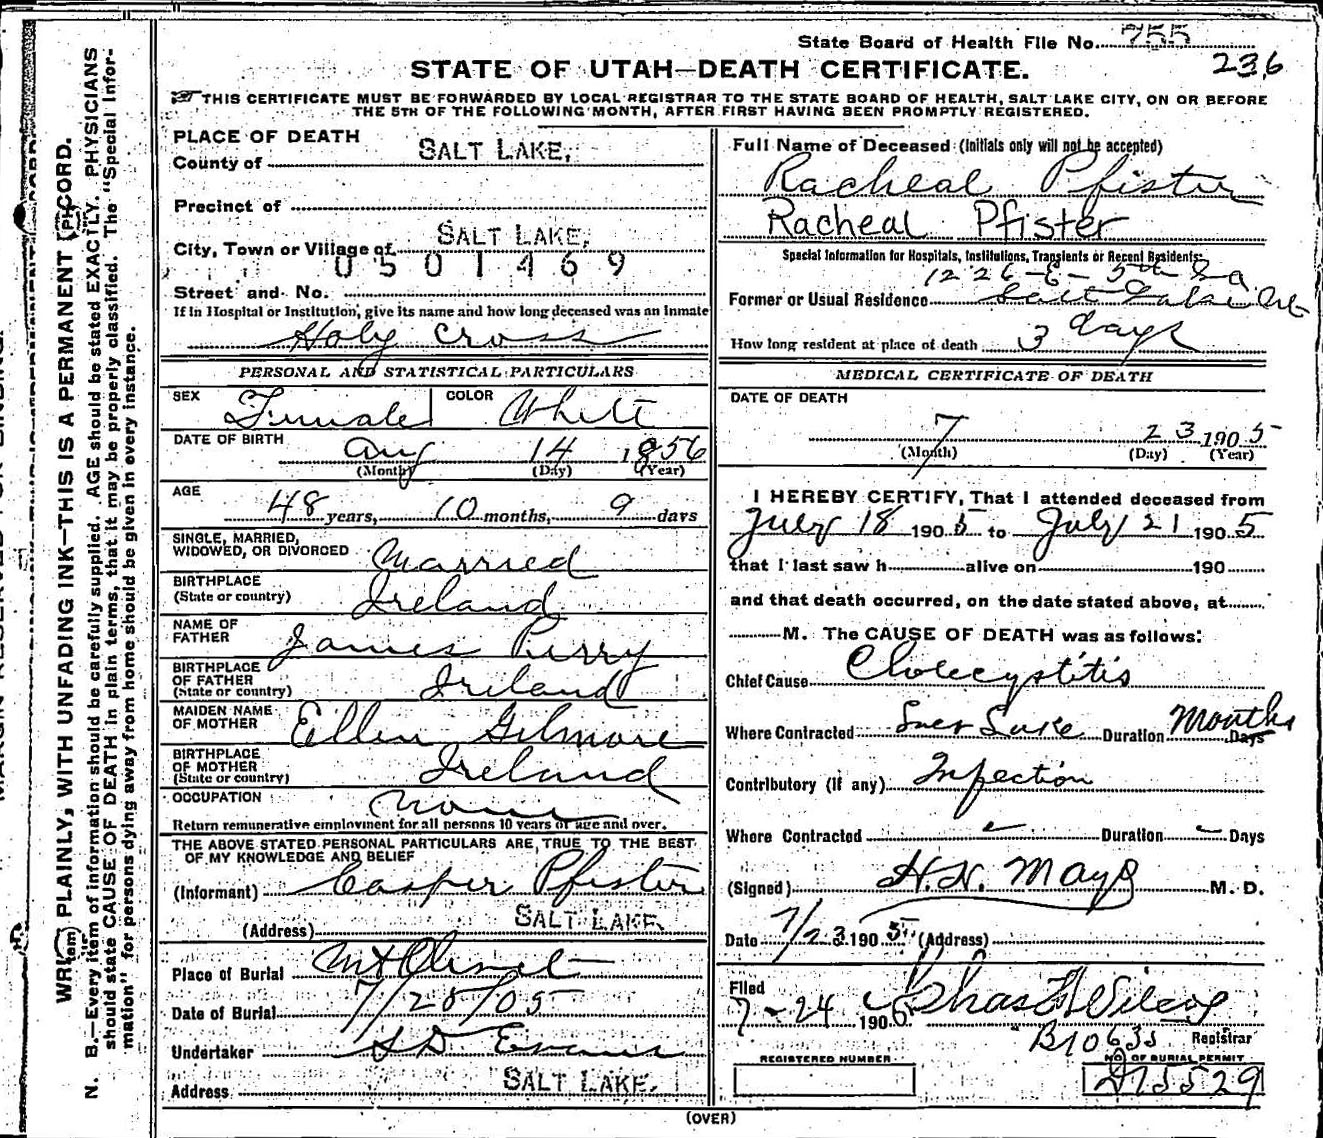 State Board of Health File No. 755
236
STATE OF UTAH—DEATH CERTIFICATE.
THIS CERTIFICATE MUST BE FORWARDED BY LOCAL REGISTRAR TO THE STATE BOARD OF HEALTH, SALT LAKE CITY, ON OR BEFORE
THE 5TH OF THE FOLLOWING MONTH, AFTER FIRST HAVING BEEN PROMPTLY REGISTERED.
PLACE OF DEATH
County of SALT LAKE,
Precinct of
City, Town or Village of SALT LAKE,
0501469
Street and No.
If in Hospital or Institution, give its name and how long deceased was an Inmate
Holy Cross
PERSONAL AND STATISTICAL PARTICULARS
SEX Female COLOR White
DATE OF BIRTH
Aug 14 1856
(Month) (Day) (Year)
AGE
48 years, 10 months, 9 days
SINGLE, MARRIED,
WIDOWED, OR DIVORCED Married
BIRTHPLACE
(State or country) Ireland
NAME OF
FATHER James Perry
BIRTHPLACE
OF FATHER
(State or country) Ireland
MAIDEN NAME
OF MOTHER Ellen Gilmore
BIRTHPLACE
OF MOTHER
(State or country) Ireland
OCCUPATION None
Return remunerative employment for all persons 10 years of age and over.
THE ABOVE STATED PERSONAL PARTICULARS ARE TRUE TO THE BEST
OF MY KNOWLEDGE AND BELIEF
(Informant) Casper Pfister
(Address) SALT LAKE.
Place of Burial Mt Olivet
Date of Burial 7/25/05
Undertaker S D Evans
Address SALT LAKE.
Full Name of Deceased (Initials only will not be accepted)
Racheal Pfister
Racheal Pfister
Special Information for Hospitals, Institutions, Transients or Recent Residents:
1226-E-5th So
Former or Usual Residence Salt Lake
How long resident at place of death 3 days
MEDICAL CERTIFICATE OF DEATH
DATE OF DEATH
7 23 1905
(Month) (Day) (Year)
I HEREBY CERTIFY, That I attended deceased from
July 18 1905 to July 21 1905
that I last saw h alive on 190
and that death occurred, on the date stated above, at
M. The CAUSE OF DEATH was as follows:
Chief Cause Cholecystitis
Where Contracted Duration Months Days
Contributory (if any) Infection
Where Contracted Duration Days
(Signed) H.N. Mayo M. D.
Date 7/23 1905 (Address)
Filed
7-24 1905 Chas Wilcox
Registrar
B10635
REGISTERED NUMBER
NO OF BURIAL PERMIT
(OVER)
WRITE PLAINLY, WITH UNFADING INK—THIS IS A PERMANENT RECORD.
N. B.—Every item of information should be carefully supplied. AGE should be stated EXACTLY. PHYSICIANS
should state CAUSE OF DEATH in plain terms, that it may be properly classified. The "Special Infor-
mation" for persons dying away from home should be given in every instance.